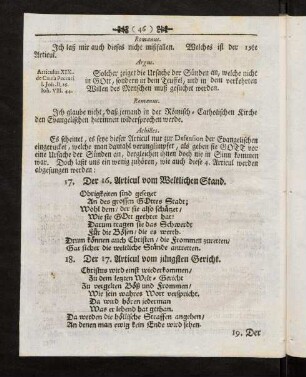 ( 46 )
Romanus.
Ich laß mir auch dieses nicht mißfallen. Welches ist der 19te
Articul.
Argus.
Articulus XIX.
de Causa Peccati
1. Joh. II. 16
Joh. VIII. 44.
Solcher zeiget die Ursache der Sünden an, welche nicht
in GOtt, sondern in dem Teuffel, und in dem verkehrten
Willen des Menschen muß gesuchet werden.
Romanus.
Ich glaube nicht, daß jemand in der Römisch-Catholischen Kirche
den Evangelischen hierinnen widersprochen werde.
Achilles.
Es scheinet, es seye dieser Articul nur zur Defension der Evangelischen
eingerucket, welche man damahl verunglimpfet, als geben sie GOTT vor
eine Ursache der Sünden an, dergleichen ihnen doch nie in Sinn kommen
war. Doch laßt uns ein wenig zuhören, wie auch diese 4. Articul werden
abgesungen werden:
17. Der 16. Articul vom Weltlichen Stand.
Obrigkeiten sind gesetzet
An des grossen GOttes Stadt;
Wohl dem/ der sie also schätzet/
Wie sie GOtt geehret hat;
Darum tragen sie das Schwerdt
Für die Bösen/ die es werth.
Drum können auch Christen/ die Frommen zutretten/
Gar sicher die weltliche Stände antretten.
18. Der 17. Articul vom jüngsten Gericht.
Christus wird einst wiederkommen/
Zu dem letzten Welt-Gericht
Zu vergelten Böß und Frommen/
Wie sein wahres Wort verspricht.
Da wird hören jederman
Was er lebend hat gethan.
Da werden die höllische Straffen angehen/
An denen man ewig kein Ende wird sehen.
19. Der